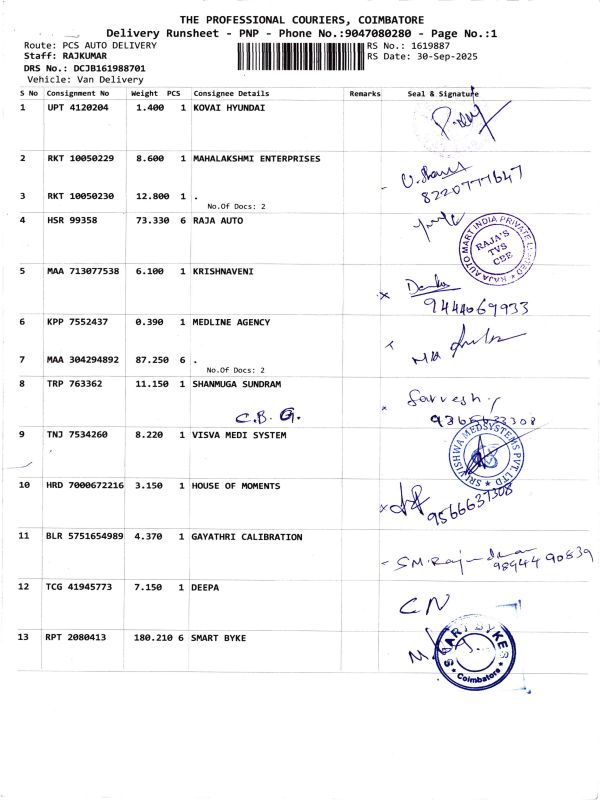 THE PROFESSIONAL COURIERS, COIMBATORE
Delivery Runsheet - PNP - Phone No.:9047080280 - Page No.:1
Route: PCS AUTO DELIVERY
RS No.: 1619887
Staff: RAJKUMAR
RS Date: 30-Sep-2025
DRS No.: DCJB161988701
Vehicle: Van Delivery
S No Consignment No Weight PCS Consignee Details Remarks Seal & Signature
1 UPT 4120204 1.400 1 KOVAI HYUNDAI
2 RKT 10050229 8.600 1 MAHALAKSHMI ENTERPRISES
8220777647
3 RKT 10050230 12.800 1 .
No.Of Docs: 2
4 HSR 99358 73.330 6 RAJA AUTO
RAJA AUTO MART INDIA PRIVATE LIMITED
RAJA'S
TVS
CBE
5 MAA 713077538 6.100 1 KRISHNAVENI
9444069933
6 KPP 7552437 0.390 1 MEDLINE AGENCY
7 MAA 304294892 87.250 6 .
No.Of Docs: 2
8 TRP 763362 11.150 1 SHANMUGA SUNDRAM
Sarvesh
C.B.G.
9 TNJ 7534260 8.220 1 VISVA MEDI SYSTEM
SRI VISHWA MEDSYSTEMS PVT LTD
10 HRD 7000672216 3.150 1 HOUSE OF MOMENTS
9566637308
11 BLR 5751654989 4.370 1 GAYATHRI CALIBRATION
S.M.Rajendran
9894490839
12 TCG 41945773 7.150 1 DEEPA
CN
13 RPT 2080413 180.210 6 SMART BYKE
SMART BYKES
Coimbatore